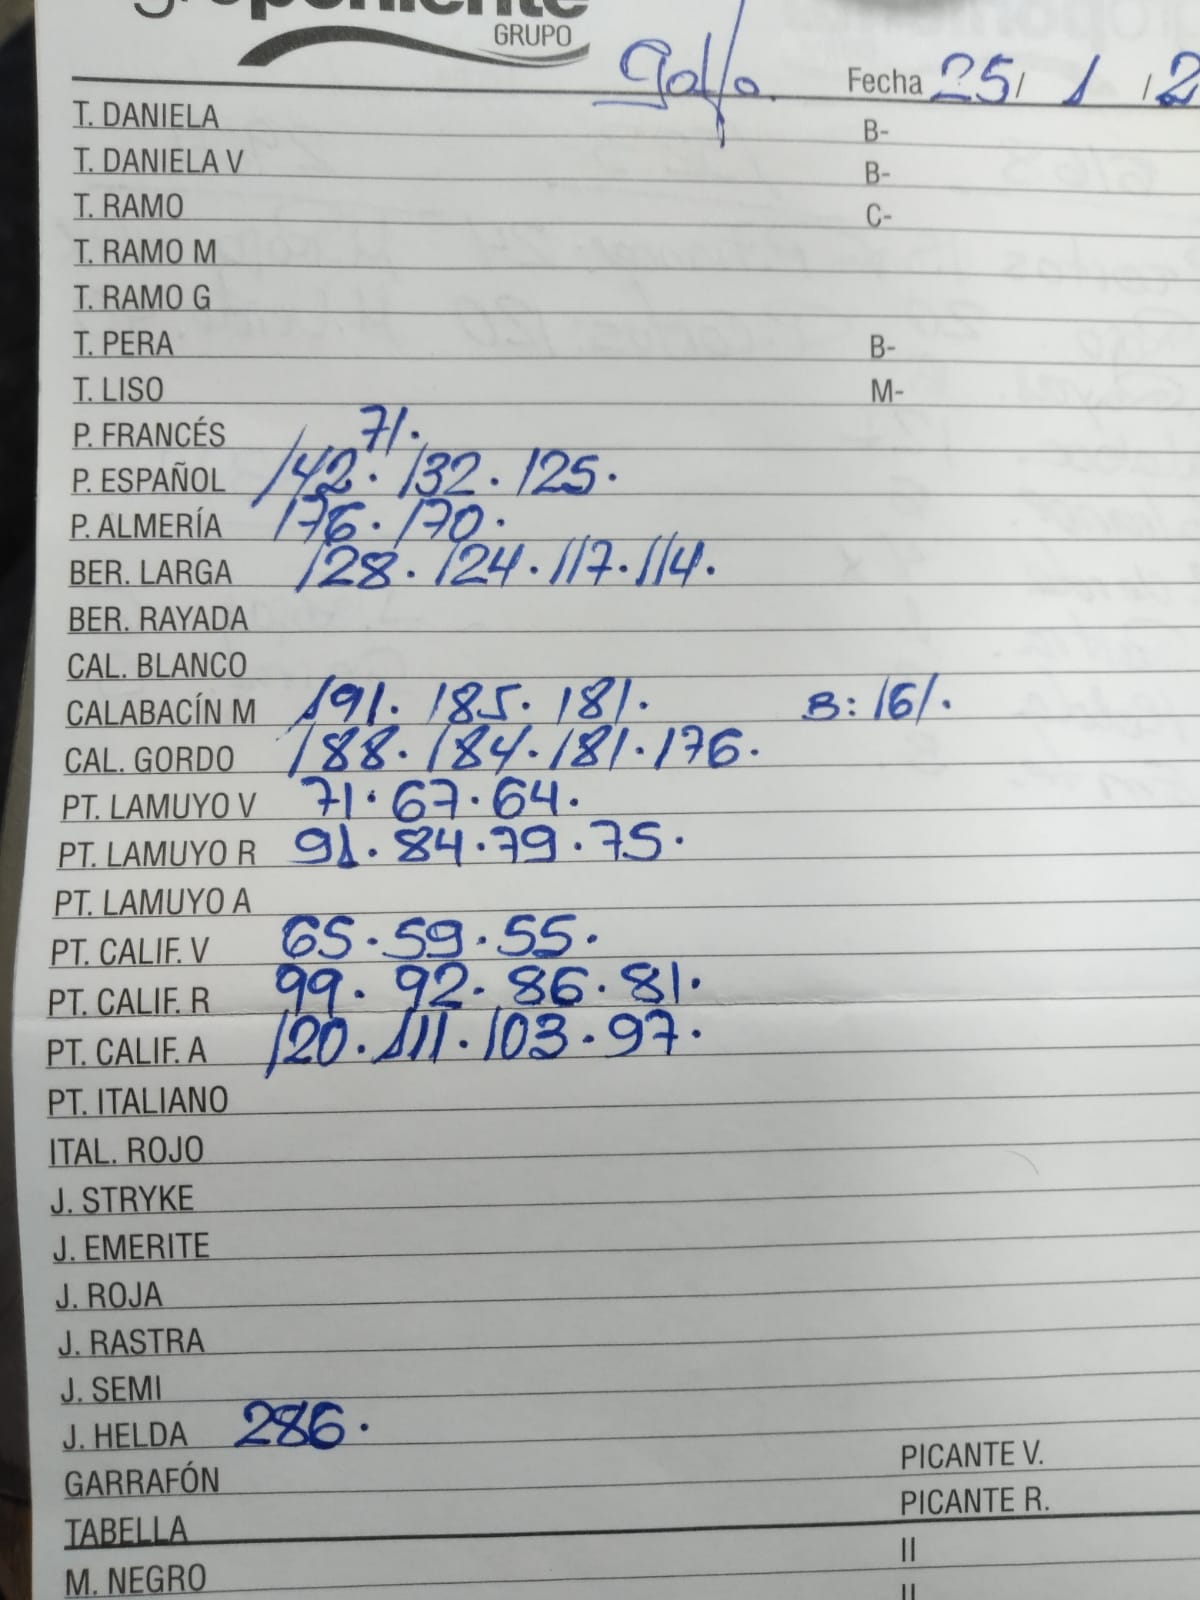 groponiente
GRUPO
Golfo. Fecha 25/ 1 /2
T. DANIELA B-
T. DANIELA V B-
T. RAMO C-
T. RAMO M
T. RAMO G
T. PERA B-
T. LISO M-
P. FRANCÉS 71.
P. ESPAÑOL 142. 132. 125.
P. ALMERÍA 176. 170.
BER. LARGA 128. 124. 117. 114.
BER. RAYADA
CAL. BLANCO
CALABACÍN M 191. 185. 181. B: 161.
CAL. GORDO 188. 184. 181. 176.
PT. LAMUYO V 71. 67. 64.
PT. LAMUYO R 91. 84. 79. 75.
PT. LAMUYO A
PT. CALIF. V 65. 59. 55.
PT. CALIF. R 99. 92. 86. 81.
PT. CALIF. A 120. 111. 103. 97.
PT. ITALIANO
ITAL. ROJO
J. STRYKE
J. EMERITE
J. ROJA
J. RASTRA
J. SEMI
J. HELDA 286.
GARRAFÓN PICANTE V.
TABELLA PICANTE R.
M. NEGRO II
II